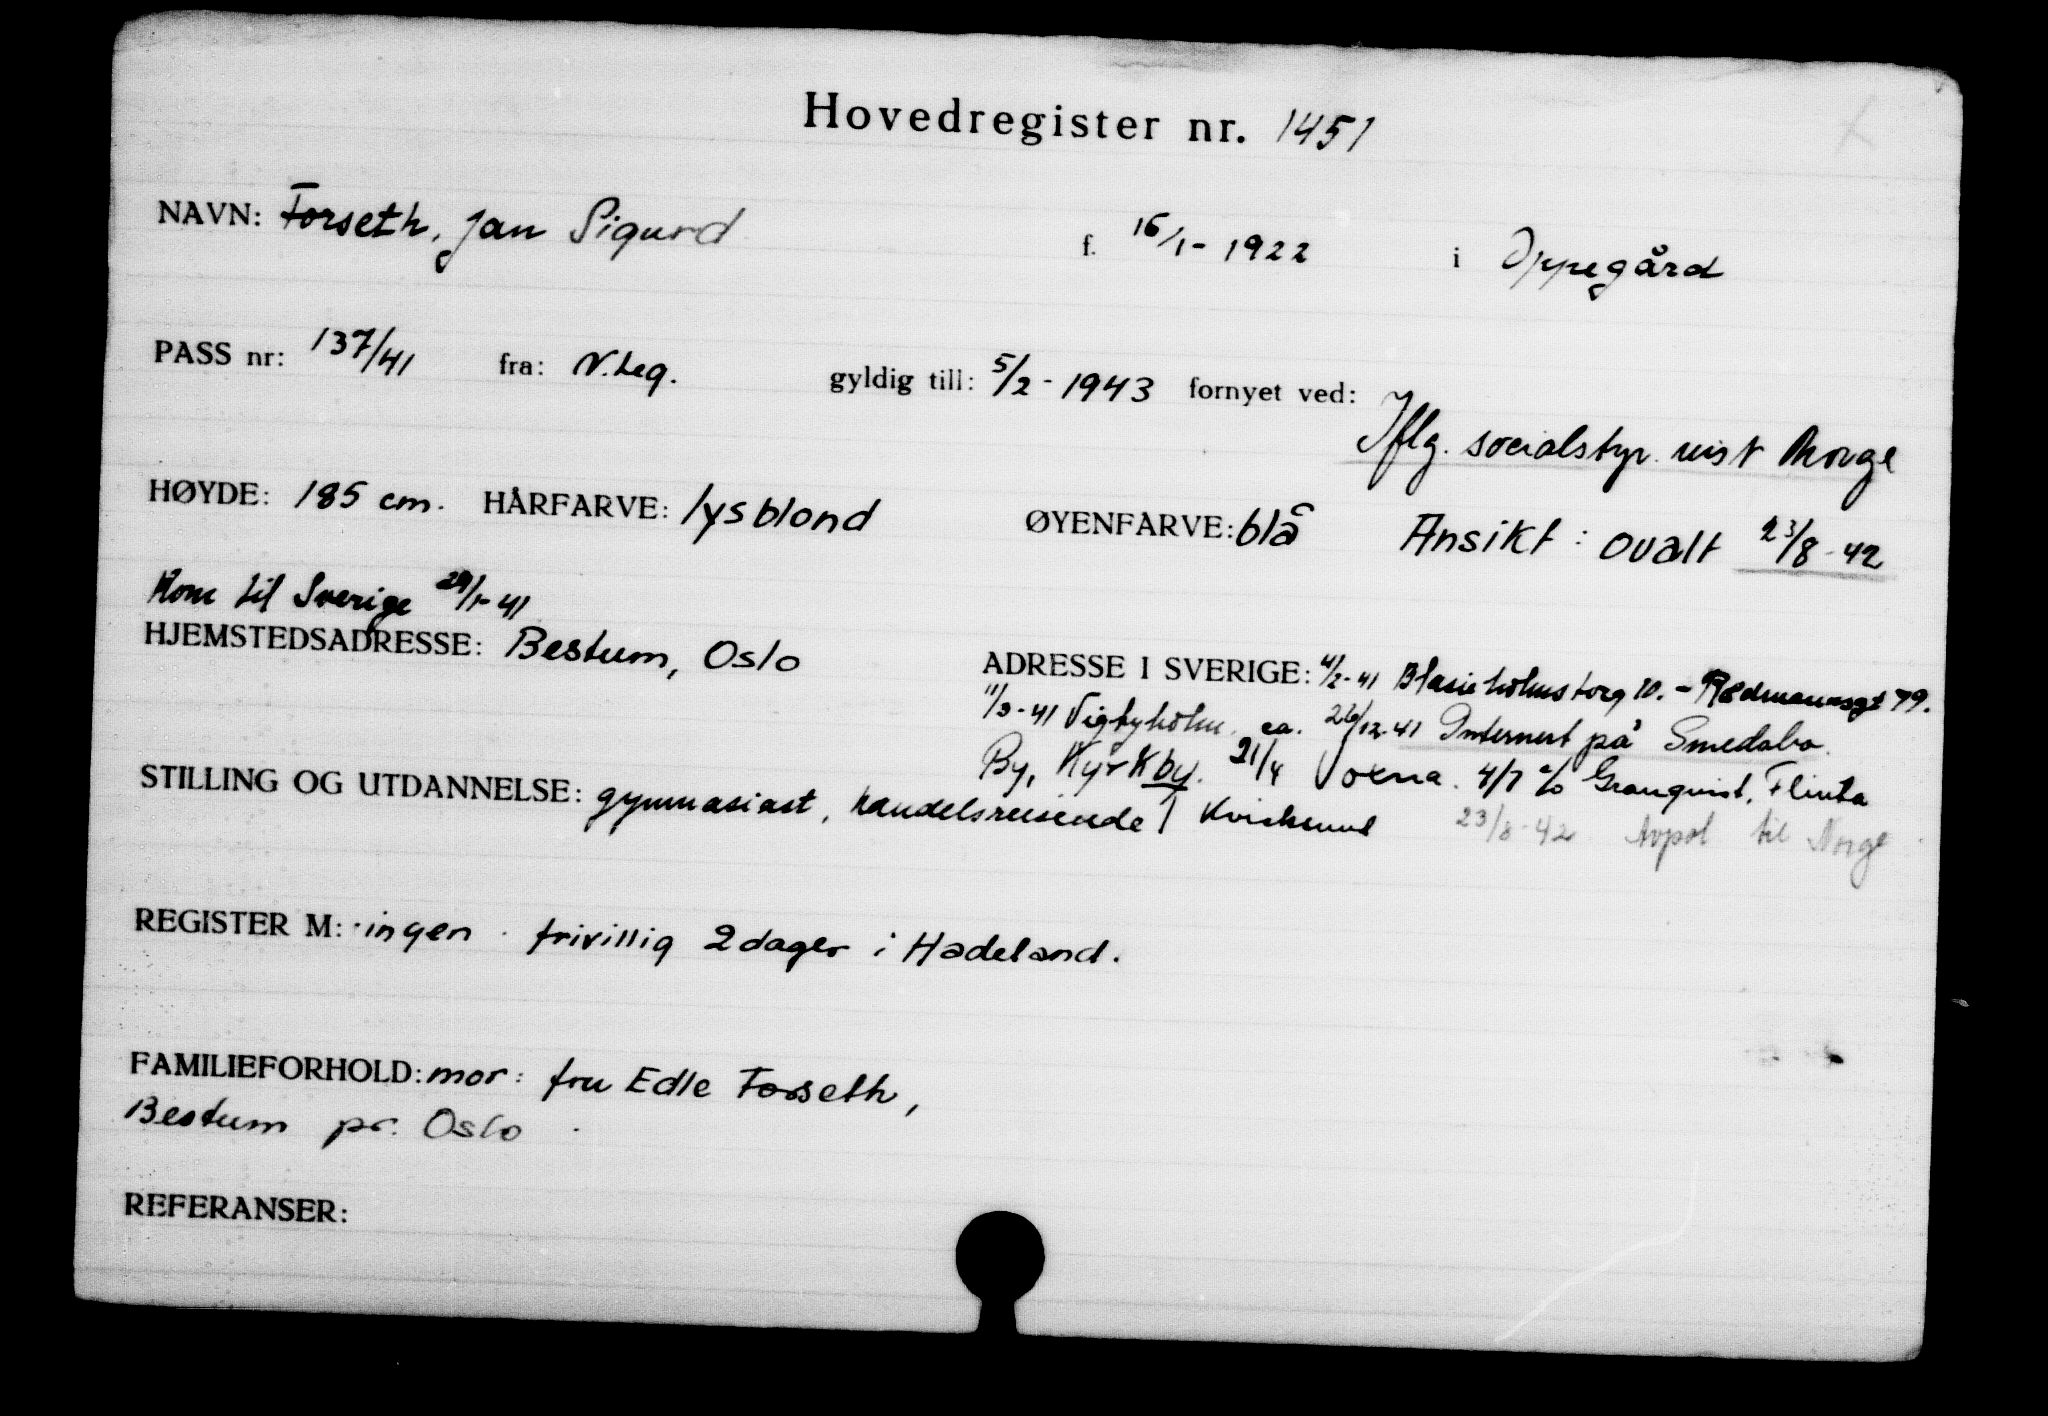 Hovedregister nr. 1451
NAVN: Forseth, Jan Sigurd f. 16/1-1922 i Oppegård
PASS nr: 137/41 fra: N.Leg. gyldig till: 5/2-1943 fornyet ved:
Iflg. socialstyr. reist Norge
HØYDE: 185 cm. HÅRFARVE: lysblond ØYENFARVE: blå Ansikt: ovalt 23/8-42
Kom til Sverige 29/1-41
HJEMSTEDSADRESSE: Bestum, Oslo ADRESSE I SVERIGE: 4/2-41 Blasieholmstorg 10. - Rådmannsgt 79.
11/3-41 Vigbyholm. ca. 26/12-41 Internert på Smedsbo.
By, Kyrkby. 21/4 Voxna. 4/7 c/o Granquist, Flinta
STILLING OG UTDANNELSE: gymnasiast, handelsreisende Kvicksund 23/8-42 Avpol til Norge
REGISTER M: ingen. frivillig 2 dager i Hadeland.
FAMILIEFORHOLD: mor: fru Edle Forseth,
Bestum pr. Oslo
REFERANSER: